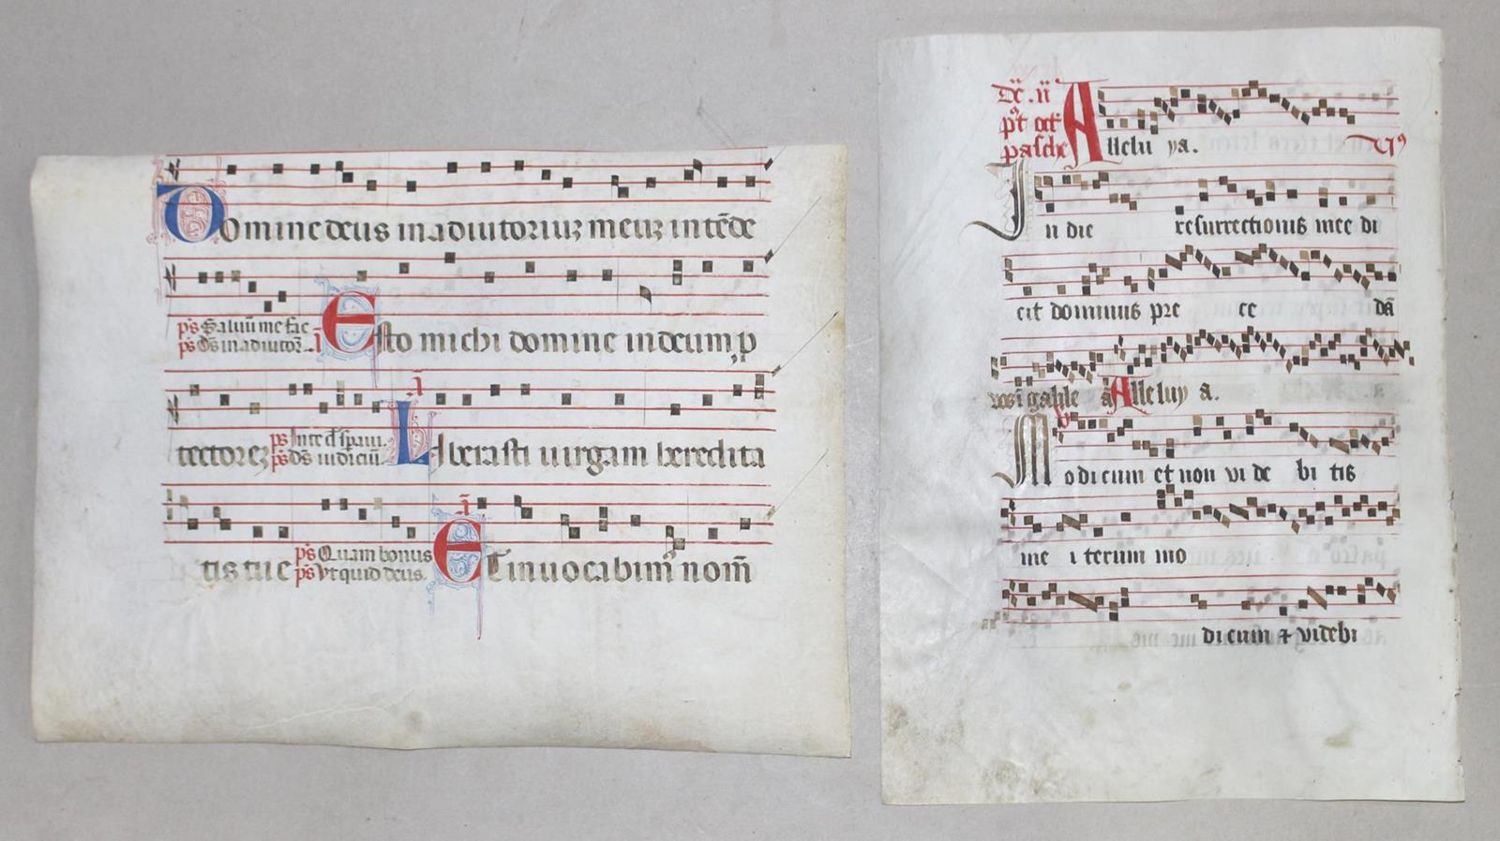 Domine deus in adiutoriuȝ meuȝ intēde
p̄s Saluū me fac
p̄s Ds̄ in adiutor̄. Esto michi domine in deum ꝓ
tectoreȝ p̄s Inte d̄ speraui.
p̄s Ds̄ iudiciū. Liberasti uirgam heredita
tis tue p̄s Quam bonus
p̄s Vt quid deus. Et inuocabim⁹ nom̄
Dc̄. ii
p⁹t oct
pasche Allelu ya. V⁹
In die resurrectionis mee di
cit dominus pre ce dā
uos i galile ā Alleluy a.
Modicum et non vi de bi tis
me i terum mo
di cum ⁊ videbi